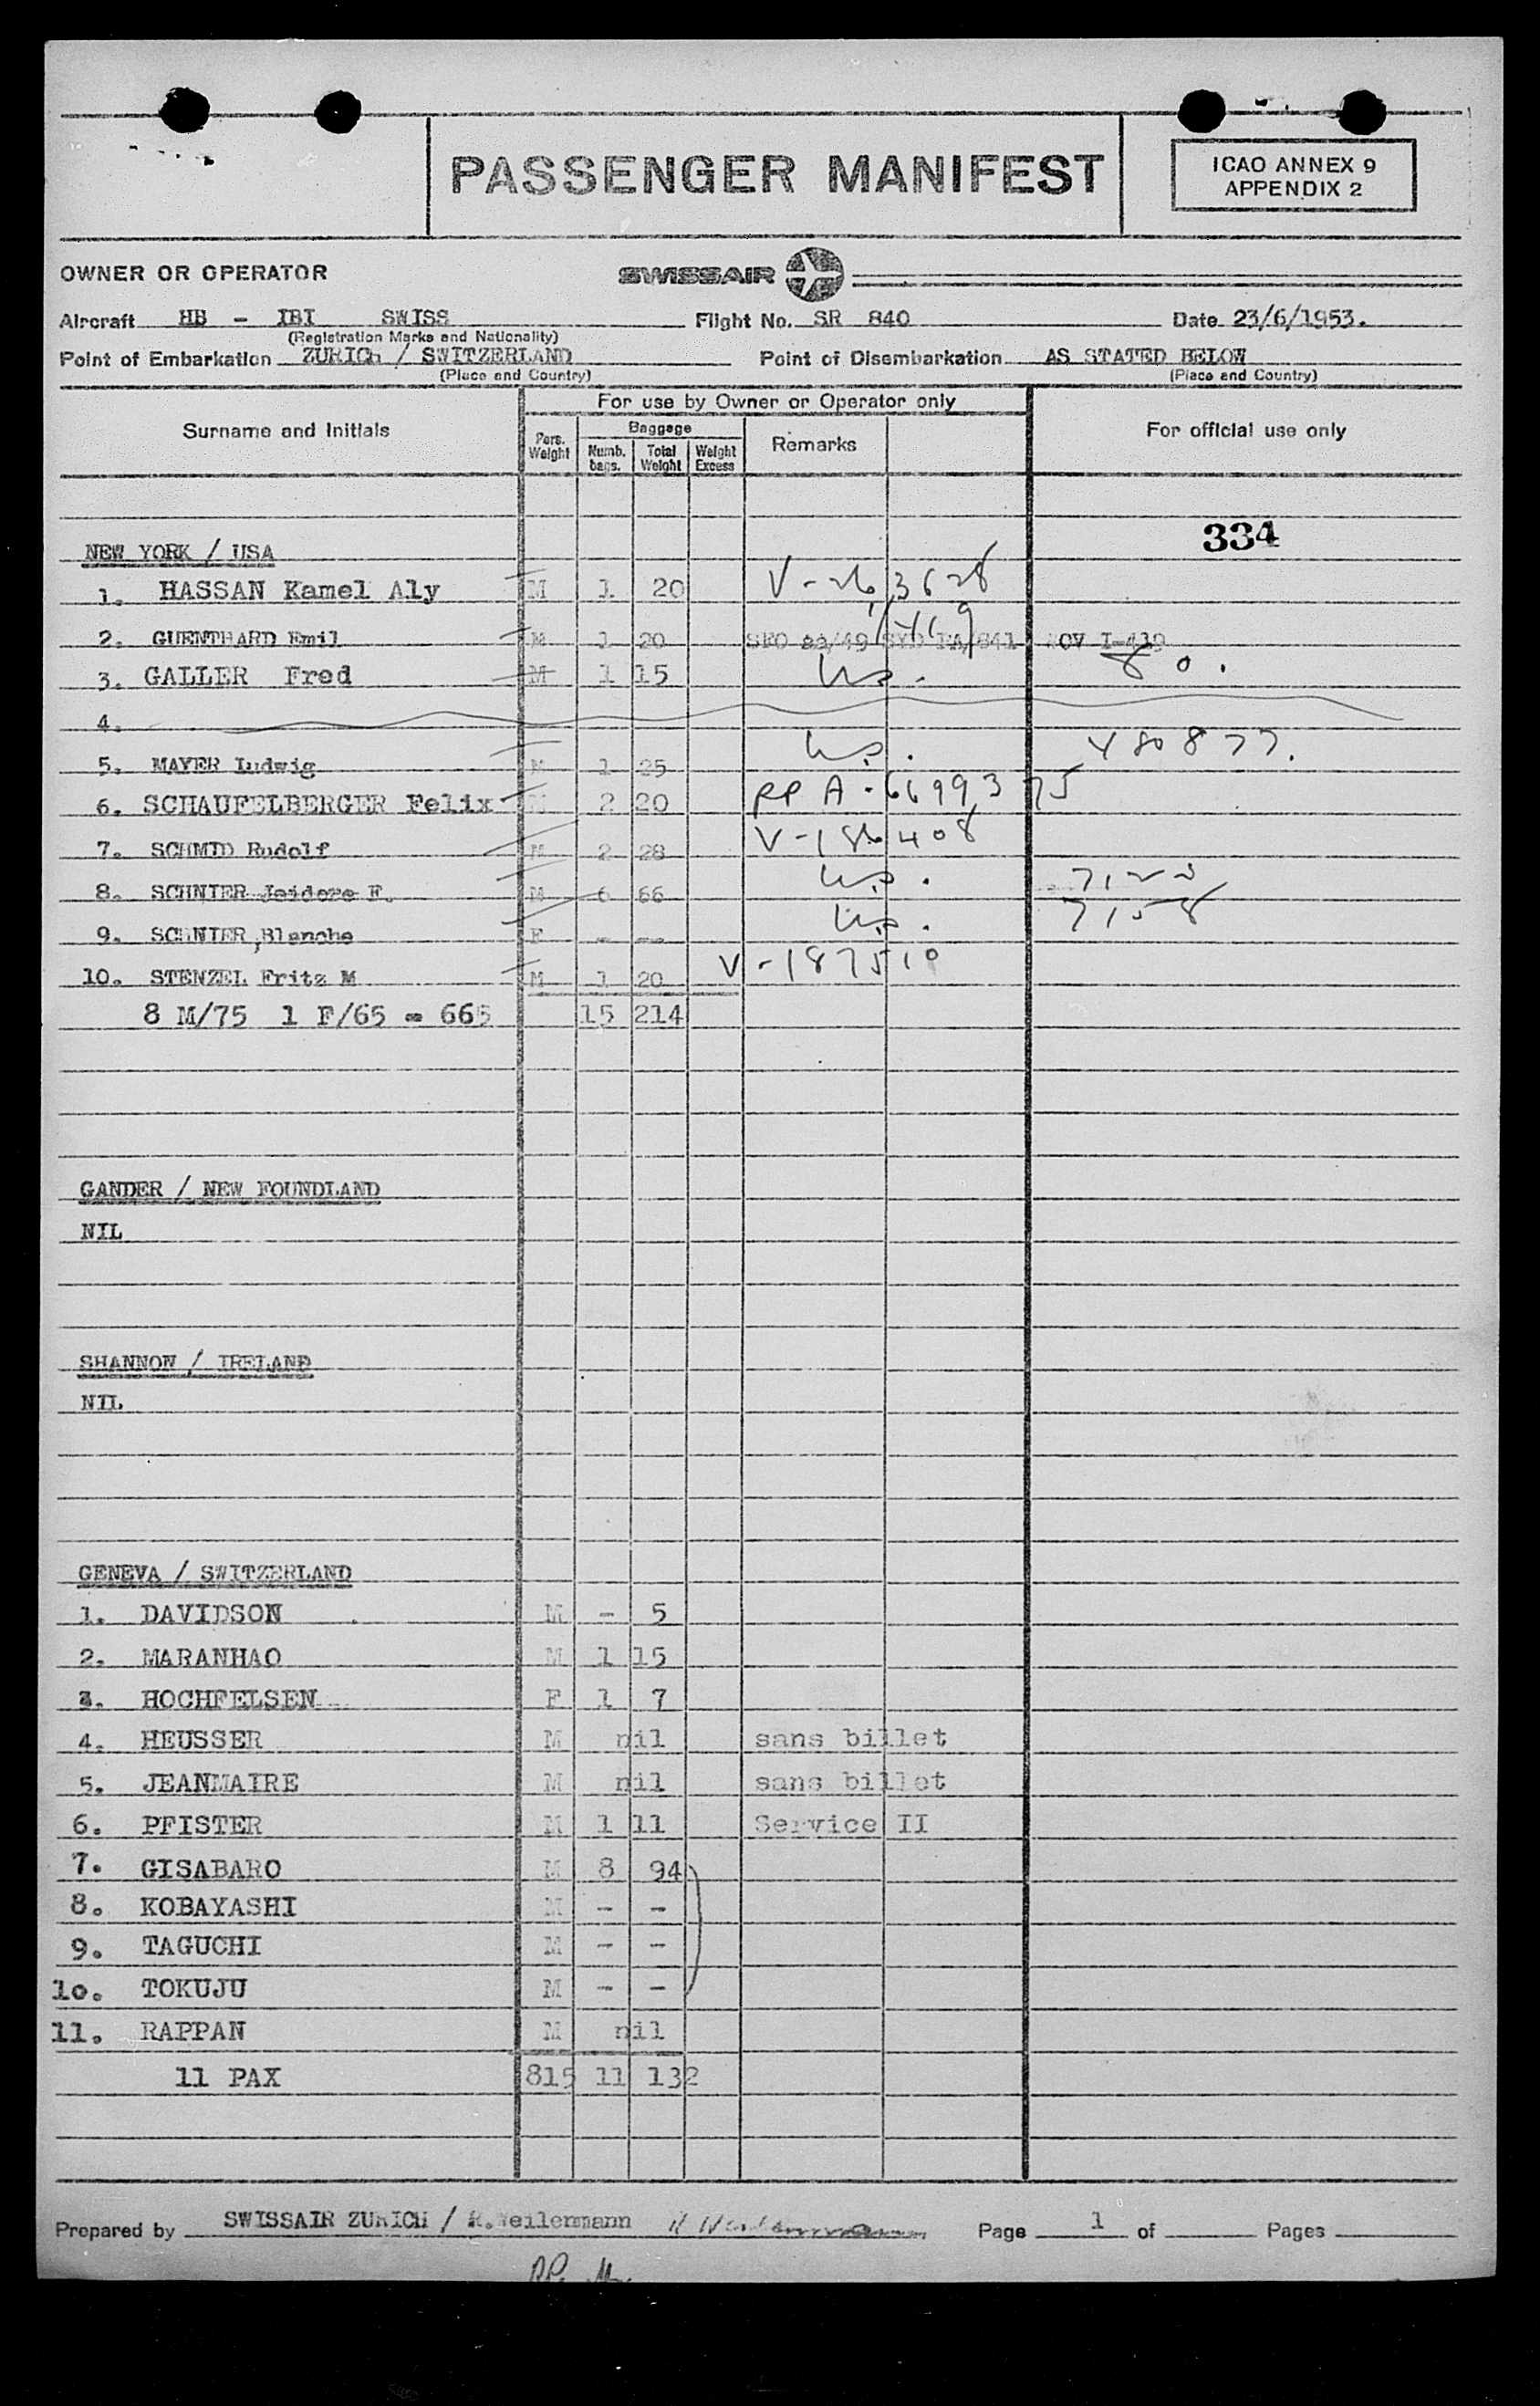 PASSENGER MANIFEST
ICAO ANNEX 9
APPENDIX 2
OWNER OR OPERATOR
SWISSAIR
Aircraft HB - IBI SWISS Flight No. SR 840 Date 23/6/1953.
(Registration Marks and Nationality)
Point of Embarkation ZURICH / SWITZERLAND Point of Disembarkation AS STATED BELOW
(Place and Country) (Place and Country)
For use by Owner or Operator only
Surname and Initials Pers. Weight Baggage Numb. bags. Total Weight Weight Excess Remarks For official use only
334
NEW YORK / USA
1. HASSAN Kamel Aly M 1 20 V-263628
2. GUENTHARD Emil M 1 20
3. GALLER Fred M 1 15 80.
4.
5. MAYER Ludwig M 1 25 480877.
6. SCHAUFELBERGER Felix M 2 20 PP A-6699375
7. SCHMID Rudolf M 2 28 V-186408
8. SCHNIER Jsidore F. M 6 66
9. SCHNIER, Blanche F - -- 7158
10. STENZEL Fritz M M 1 20 V-187510
8 M/75 1 F/65 = 665 15 214
GANDER / NEW FOUNDLAND
NIL
SHANNON / IRELAND
NIL
GENEVA / SWITZERLAND
1. DAVIDSON M - 5
2. MARANHAO M 1 15
3. HOCHFELSEN F 1 7
4. HEUSSER M nil sans billet
5. JEANMAIRE M nil sans billet
6. PFISTER M 1 11 Service II
7. GISABARO M 8 94
8. KOBAYASHI M - -
9. TAGUCHI M - -
10. TOKUJU M - -
11. RAPPAN M nil
11 PAX 815 11 132
Prepared by SWISSAIR ZURICH / R.Weilenmann Page 1 of Pages